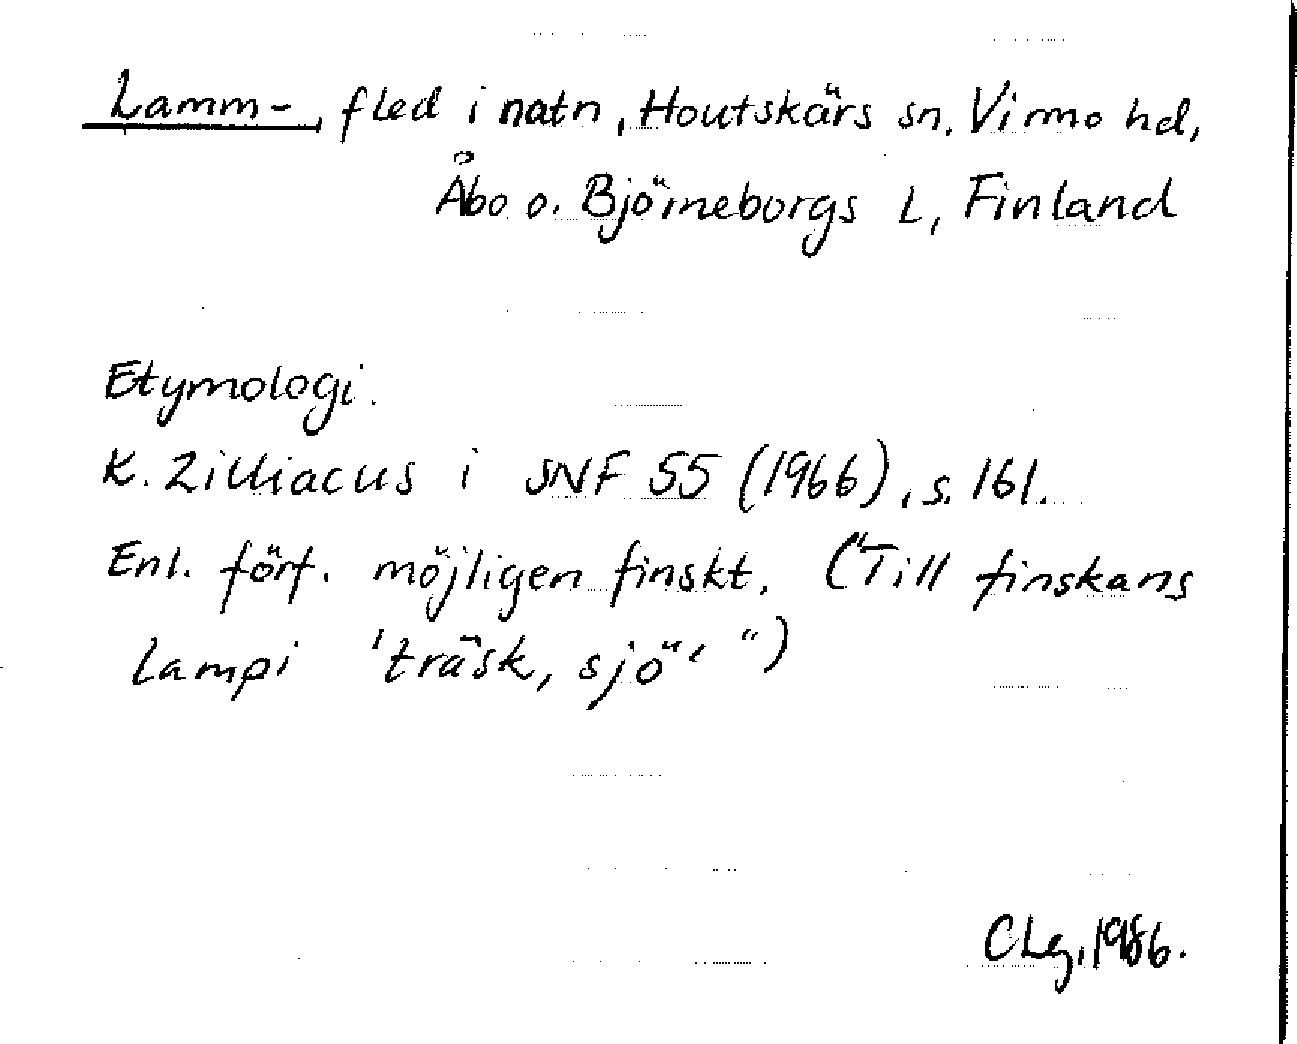 Lamm-, fled i natn, Houtskärs sn, Virmo hd,
Åbo o. Björneborgs L, Finland
Etymologi.
K. Zilliacus i SNF 55 (1966), s. 161.
Enl. förf. möjligen finskt. ("Till finskans
lampi 'träsk, sjö' ")
CLg, 1986.